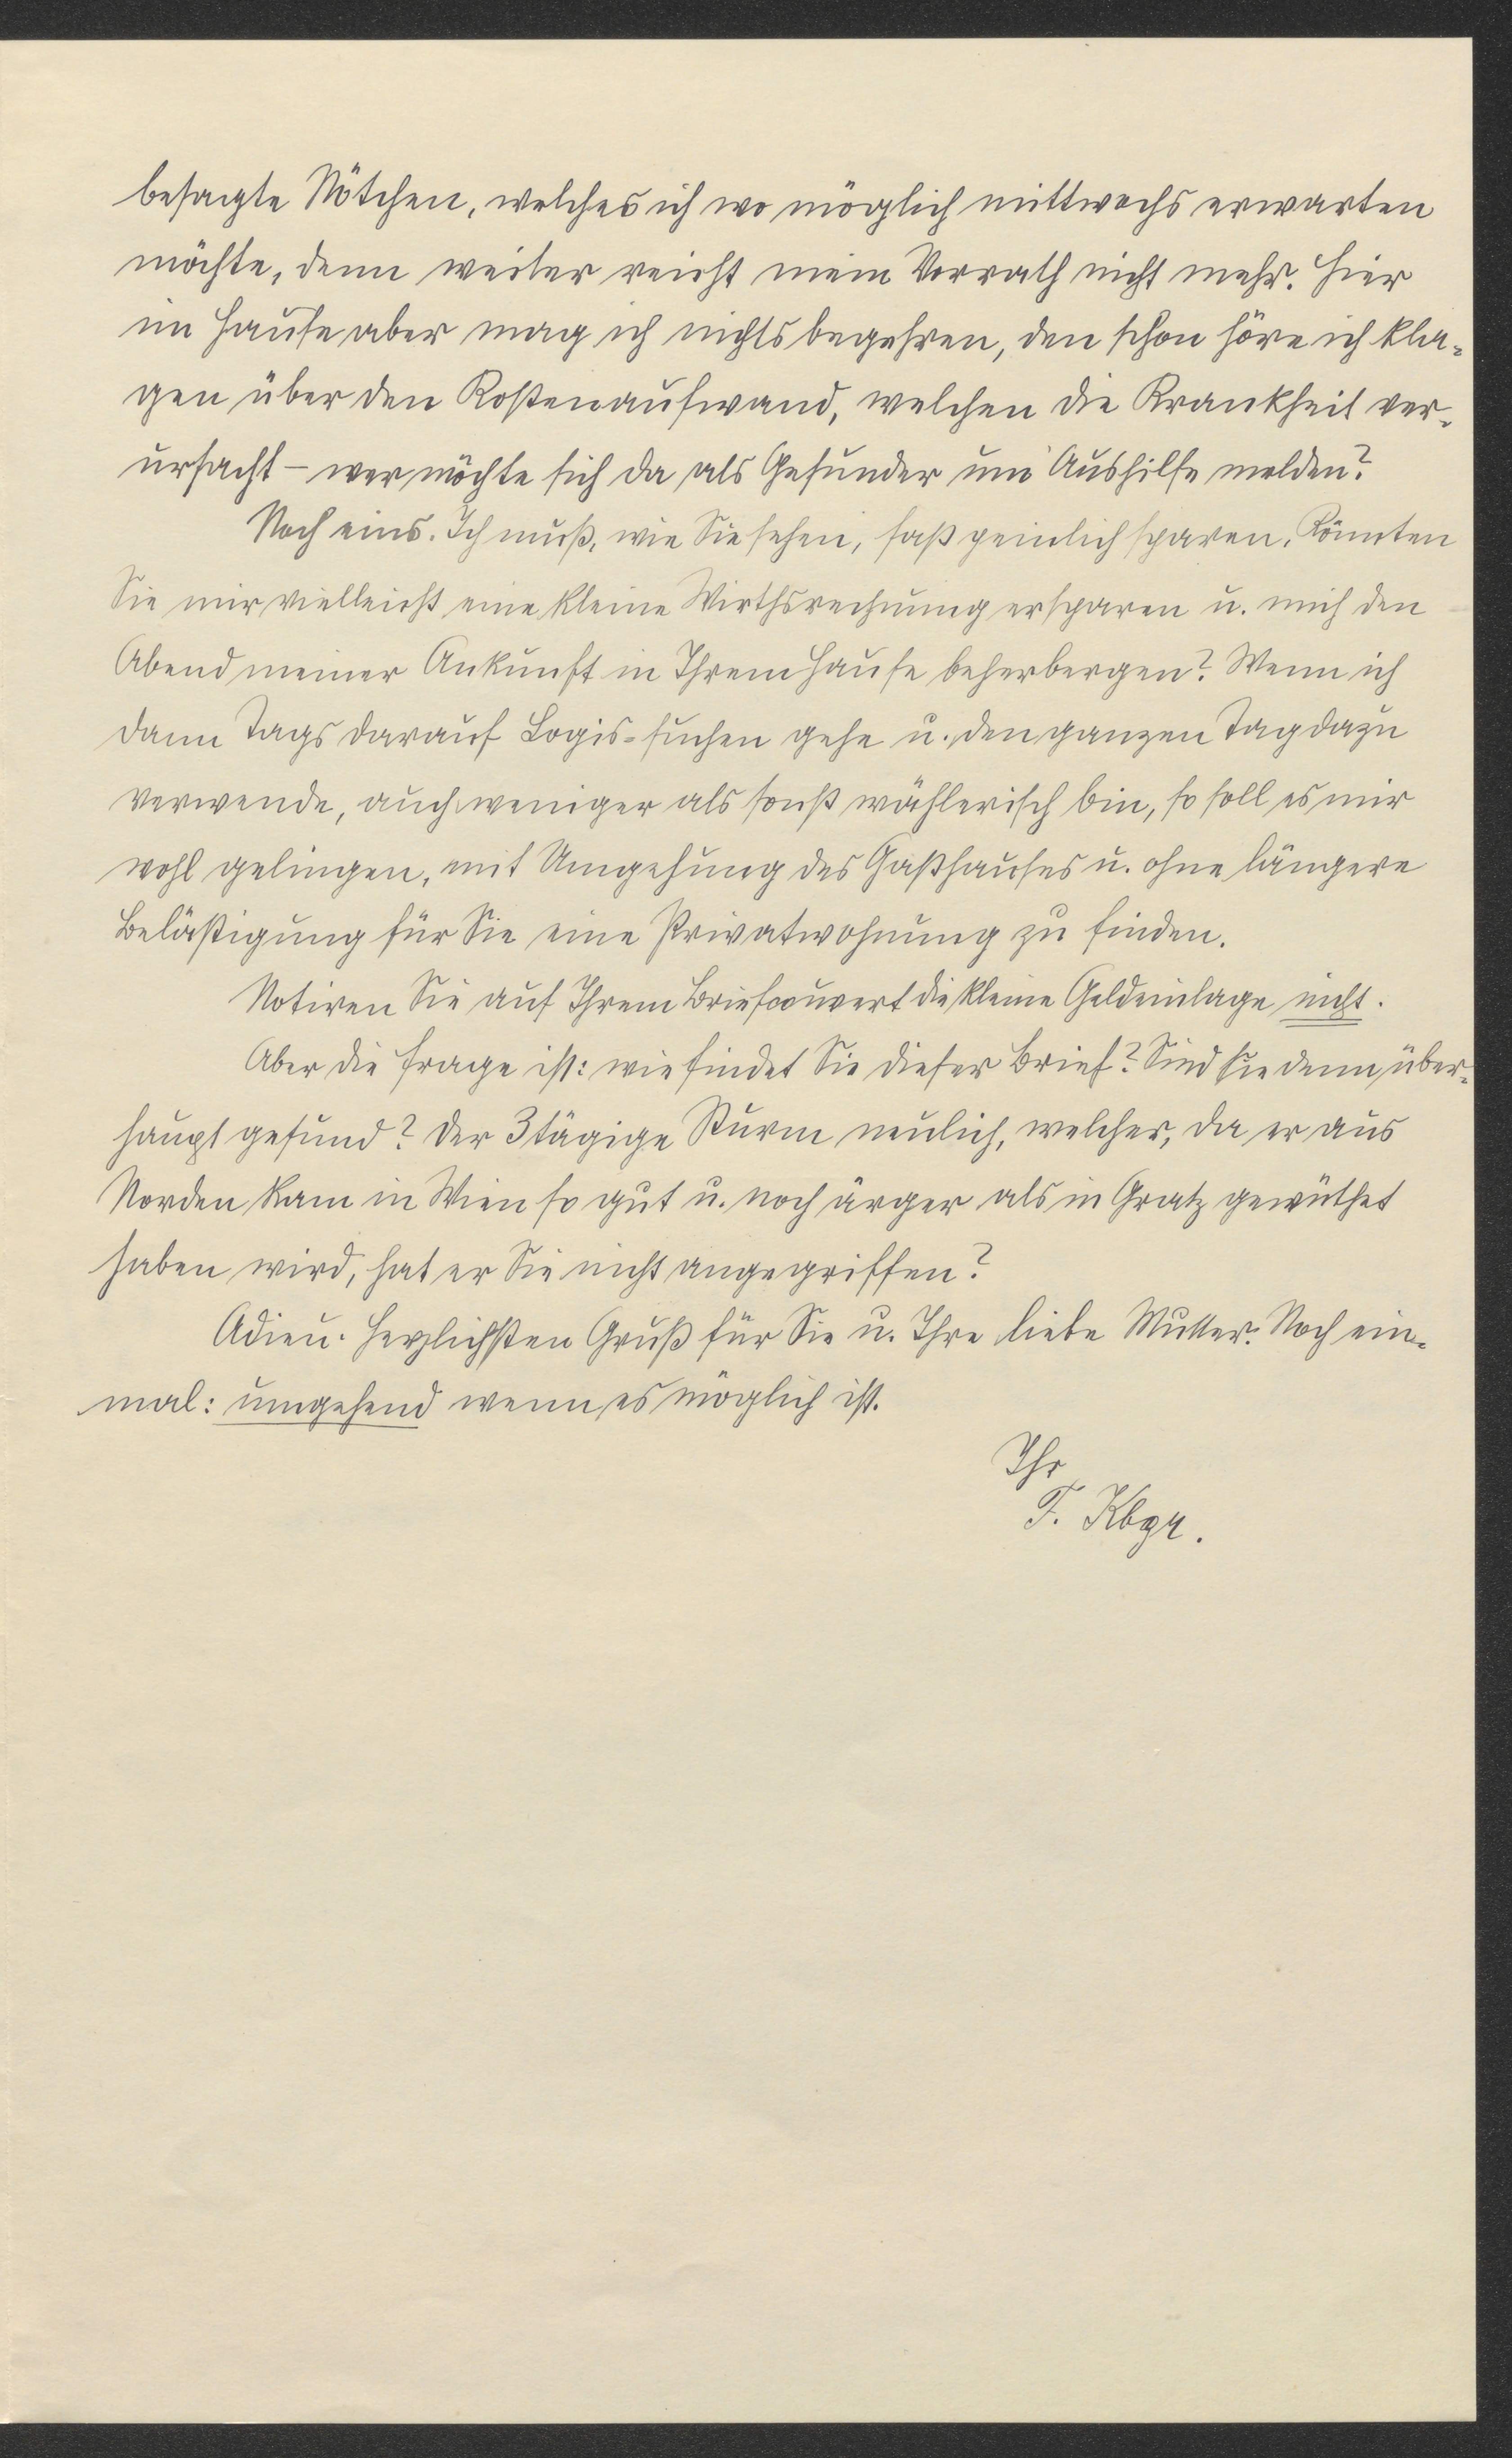 besagte Nötchen, welches ich wo möglich mittwochs erwarten
möchte, denn weiter reicht mein Vorrath nicht mehr. Hier
im Hause aber mag ich nichts begehren, den schon höre ich kla-
gen über den Kostenaufwand, welchen die Krankheit ver-
ursacht – wer möchte sich da als Gesunder um Aushilfe melden?
Noch eins. Ich muß, wie Sie sehen, fast peinlich sparen. Könnten
Sie mir vielleicht eine kleine Wirthsrechnung ersparen u. mich den
Abend meiner Ankunft in Ihrem Hause beherbergen? Wenn ich
dann Tags darauf Logis-suchen gehe u. den ganzen Tag dazu
verwende, auch weniger als sonst wählerisch bin, so soll es mir
wohl gelingen, mit Umgehung des Gasthauses u. ohne längere
Belästigung für Sie eine Privatwohnung zu finden.
Notiren Sie auf Ihrem Briefcouvert die kleine Geldeinlage nicht.
Aber die Frage ist: wie findet Sie dieser Brief? Sind sie denn über-
haupt gesund? Der 3tägige Sturm neulich, welcher, da er aus
Norden kam in Wien so gut u. noch ärger als in Gratz gewüthet
haben wird, hat er Sie nicht angegriffen?
Adieu. Herzlichsten Gruß für Sie u. Ihre liebe Mutter. Noch ein-
mal: umgehend wenn es möglich ist.
Ihr
F. Kbgr.